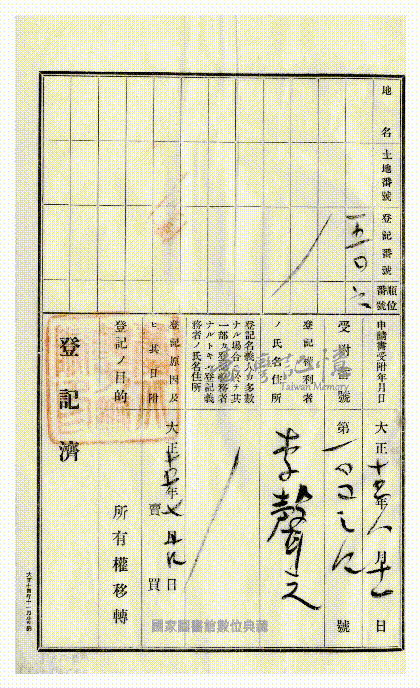 地名
土地番號
登記番號
順位番號
申請書受附年月日
大正十五年八月十一日
受附番號
第
號
登記權利者ノ氏名住所
李聲之
登記名義人ガ多數ナル場合ニ於テ其一部ガ登記義務者ナルトキハ登記義務者ノ氏名住所
登記原因及ヒ其日附
大正十五年七月
日
賣買
登記ノ目的
所有權移轉
登記濟
臺灣記憶
Taiwan Memory
國家圖書館數位典藏